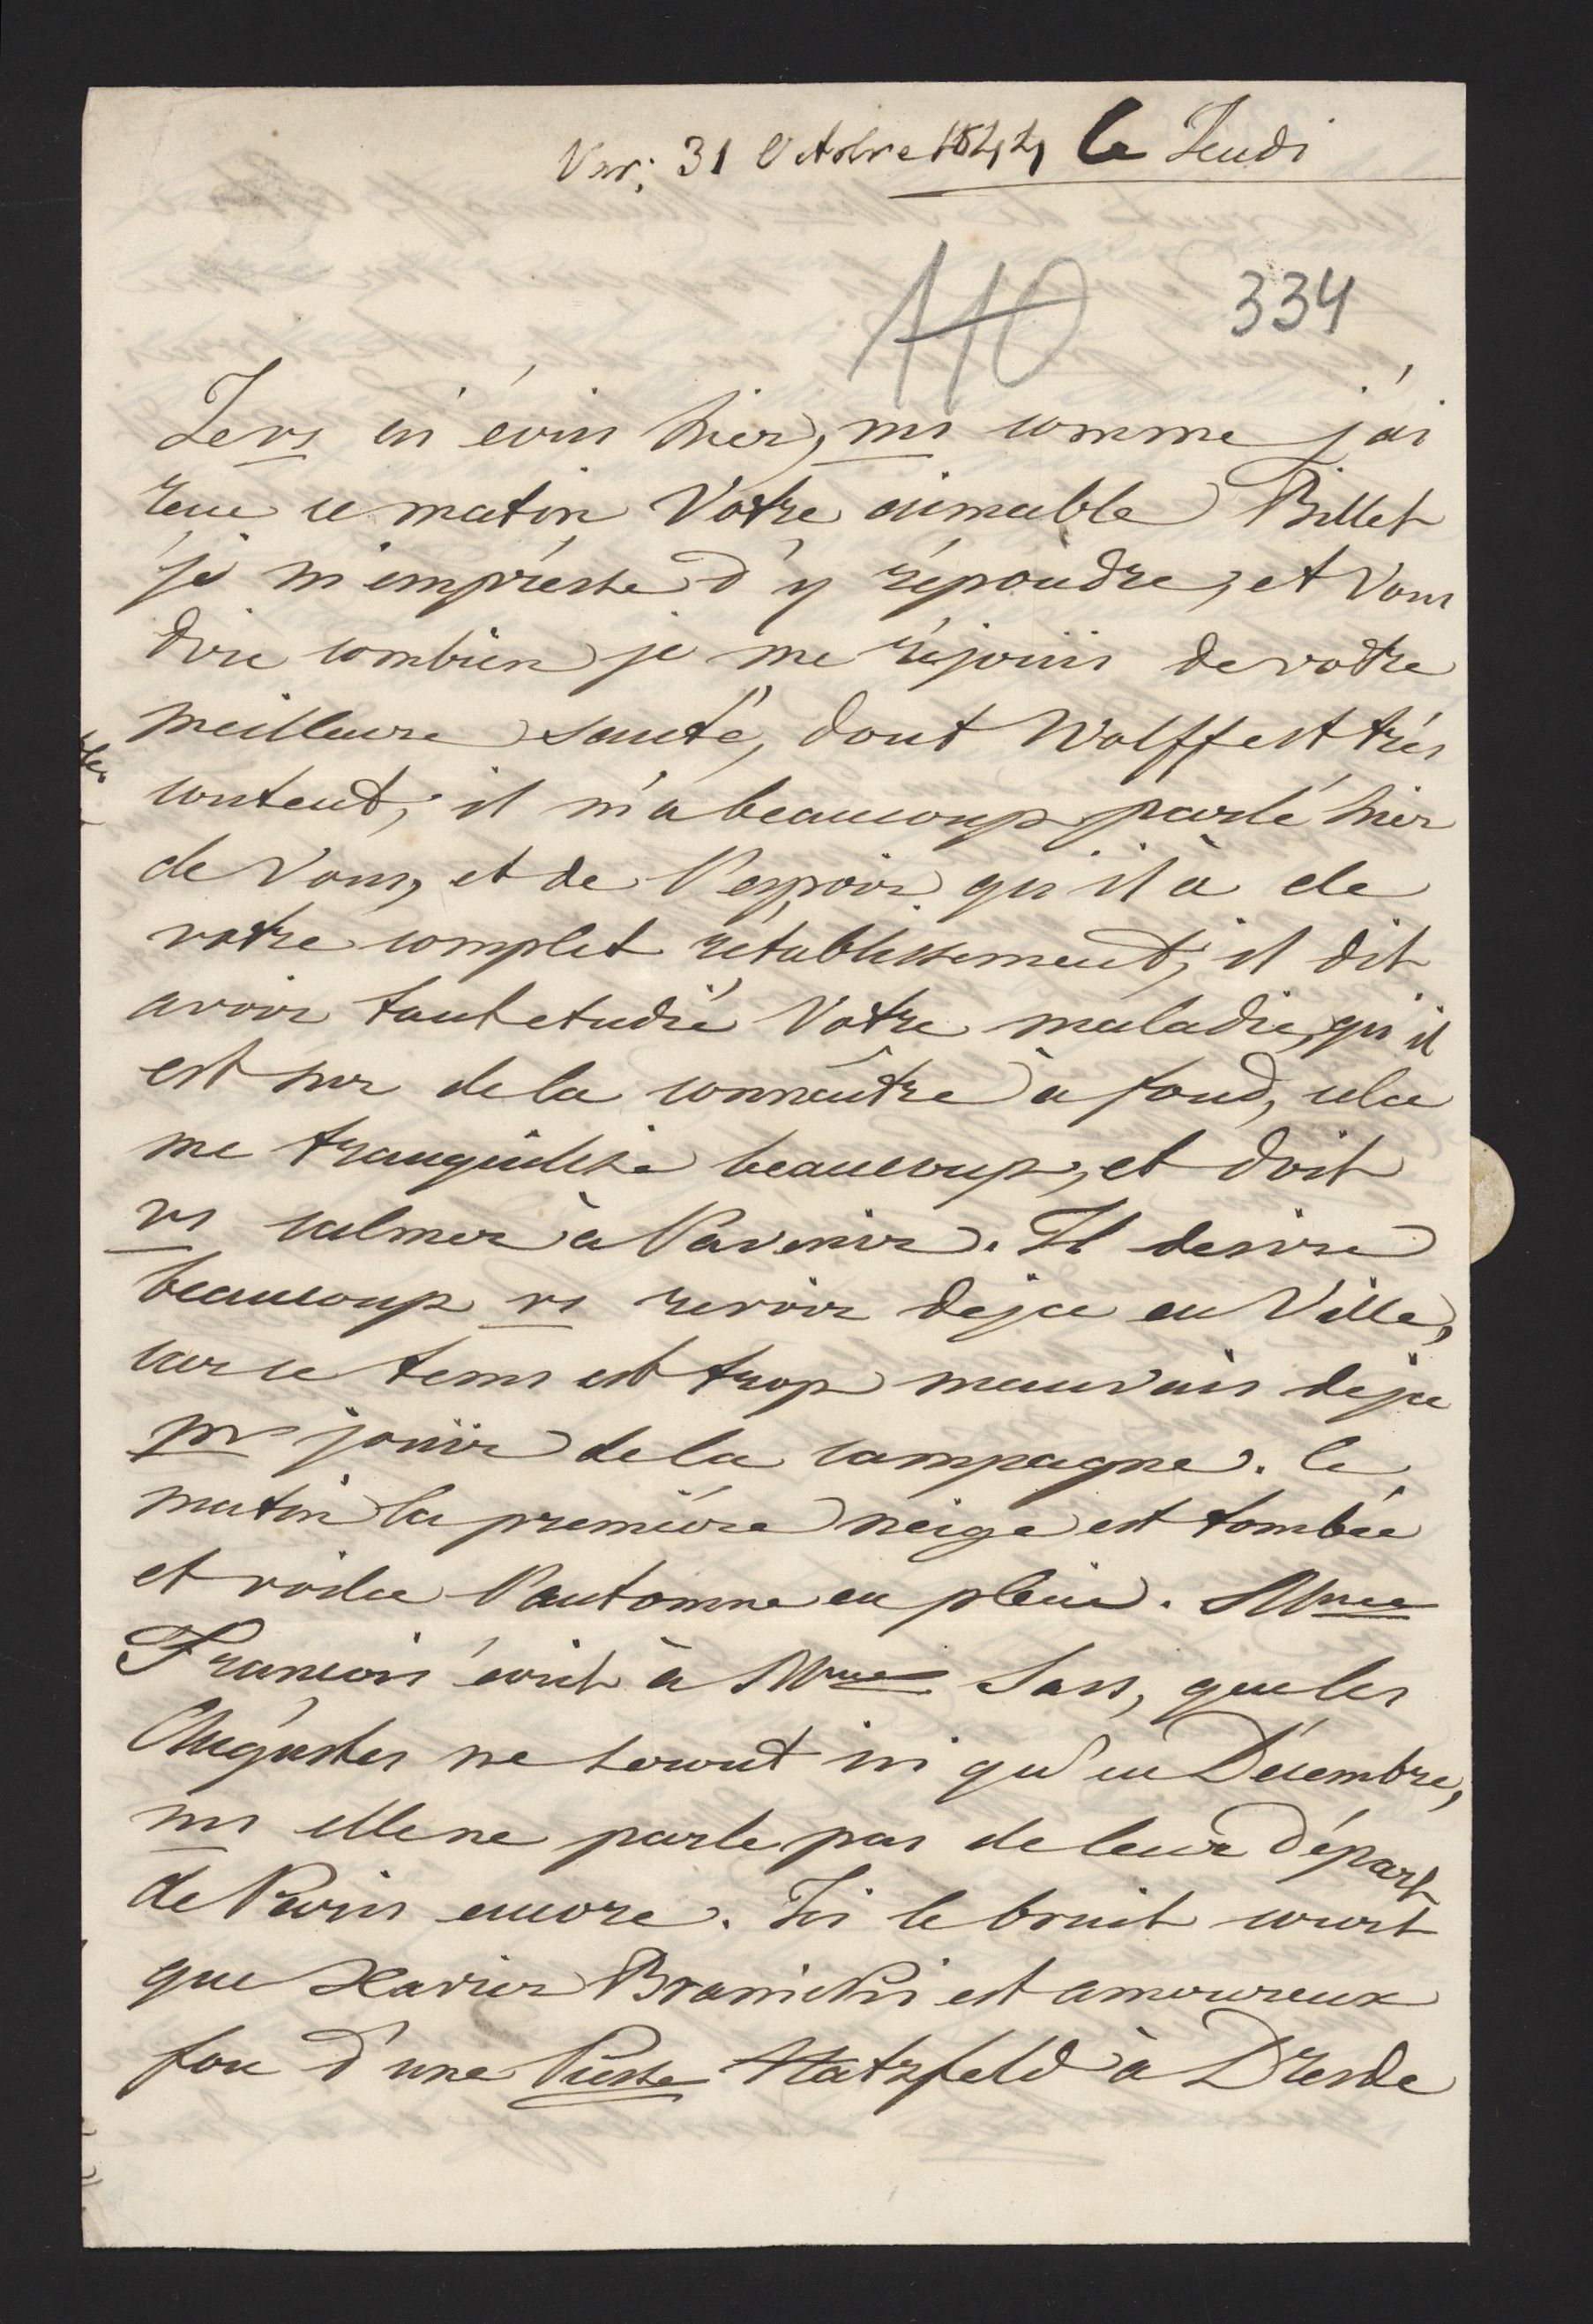 Var: 31 Octobre 1844 Ce Jeudi
110 334
Je vs ai écris hier, ms comme j'ai
reçu ce matin Votre aimable Billet
je m'empresse d'y répondre, et Vous
dire combien je me réjouis de votre
meilleure santé, dont Wolff est très
content, il m'a beaucoup parlé hier
de Vous, et de l'espoir qu'il à de
votre complet rétablissement, il dit
avoir tant etudié Votre maladie, qu'il
est sur de la connaître à fond, cela
me tranquilise beaucoup, et doit
vs calmer à l'avenir. Il desire
beaucoup vs revoir deja en Ville,
car ce tems est trop mauvais deja
pr jouir de la campagne. Ce
matin la première neige est tombée
et voila l'automne en plein. Mme
François écrit à Mme Sass, que les
Augustes ne seront ici qu'en Décembre,
ms elle ne parle pas de leur départ
de Paris encore. Ici le bruit court
que Xavier Branicki est amoureux
fou d'une Pcsse Hatzfeld à Dresde